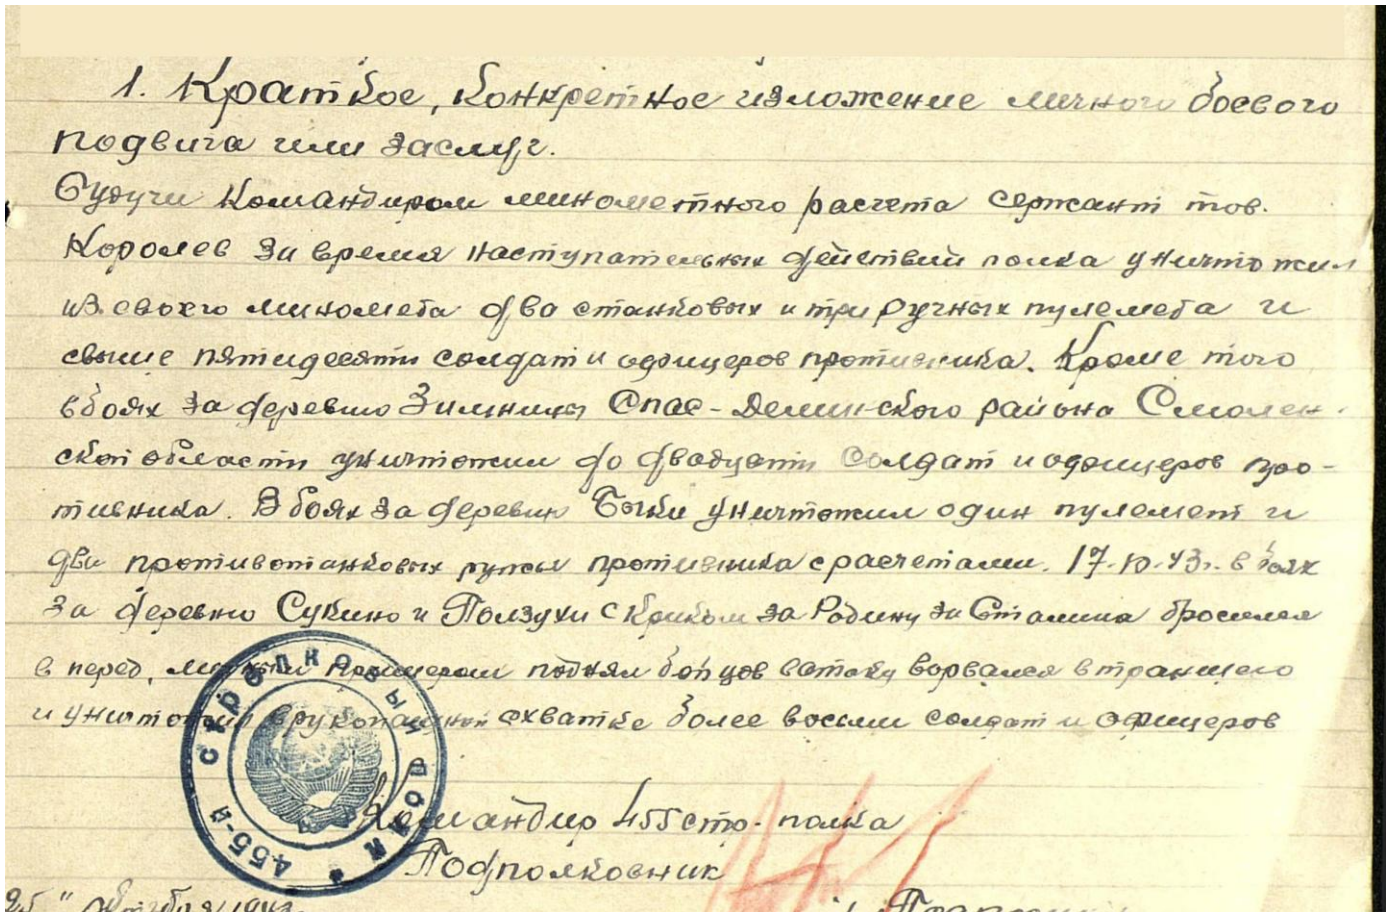 1. Краткое, конкретное изложение личного боевого
подвига или заслуг.
Будучи командиром минометного расчета сержант тов.
Королев за время наступательных действий полка уничтожил
из своего миномета два станковых и три ручных пулемета и
свыше пятидесяти солдат и офицеров противника. Кроме того
в боях за деревню Зимницы Спас-Деминского района Смолен-
ской области уничтожил до двадцати солдат и офицеров про-
тивника. В боях за деревни Быки уничтожил один пулемет и
два противотанковых ружья противника с расчетами. 17.10.43г. в боях
за деревню Сукино и Ползухи с криком за Родину за Сталина бросился
в перед, личным примером поднял бойцов в атаку ворвался в траншею
и уничтожил в рукопашной схватке более восьми солдат и офицеров
455-й стрелковый полк
Командир 455 стр. полка
Подполковник
25" октября 1943г.